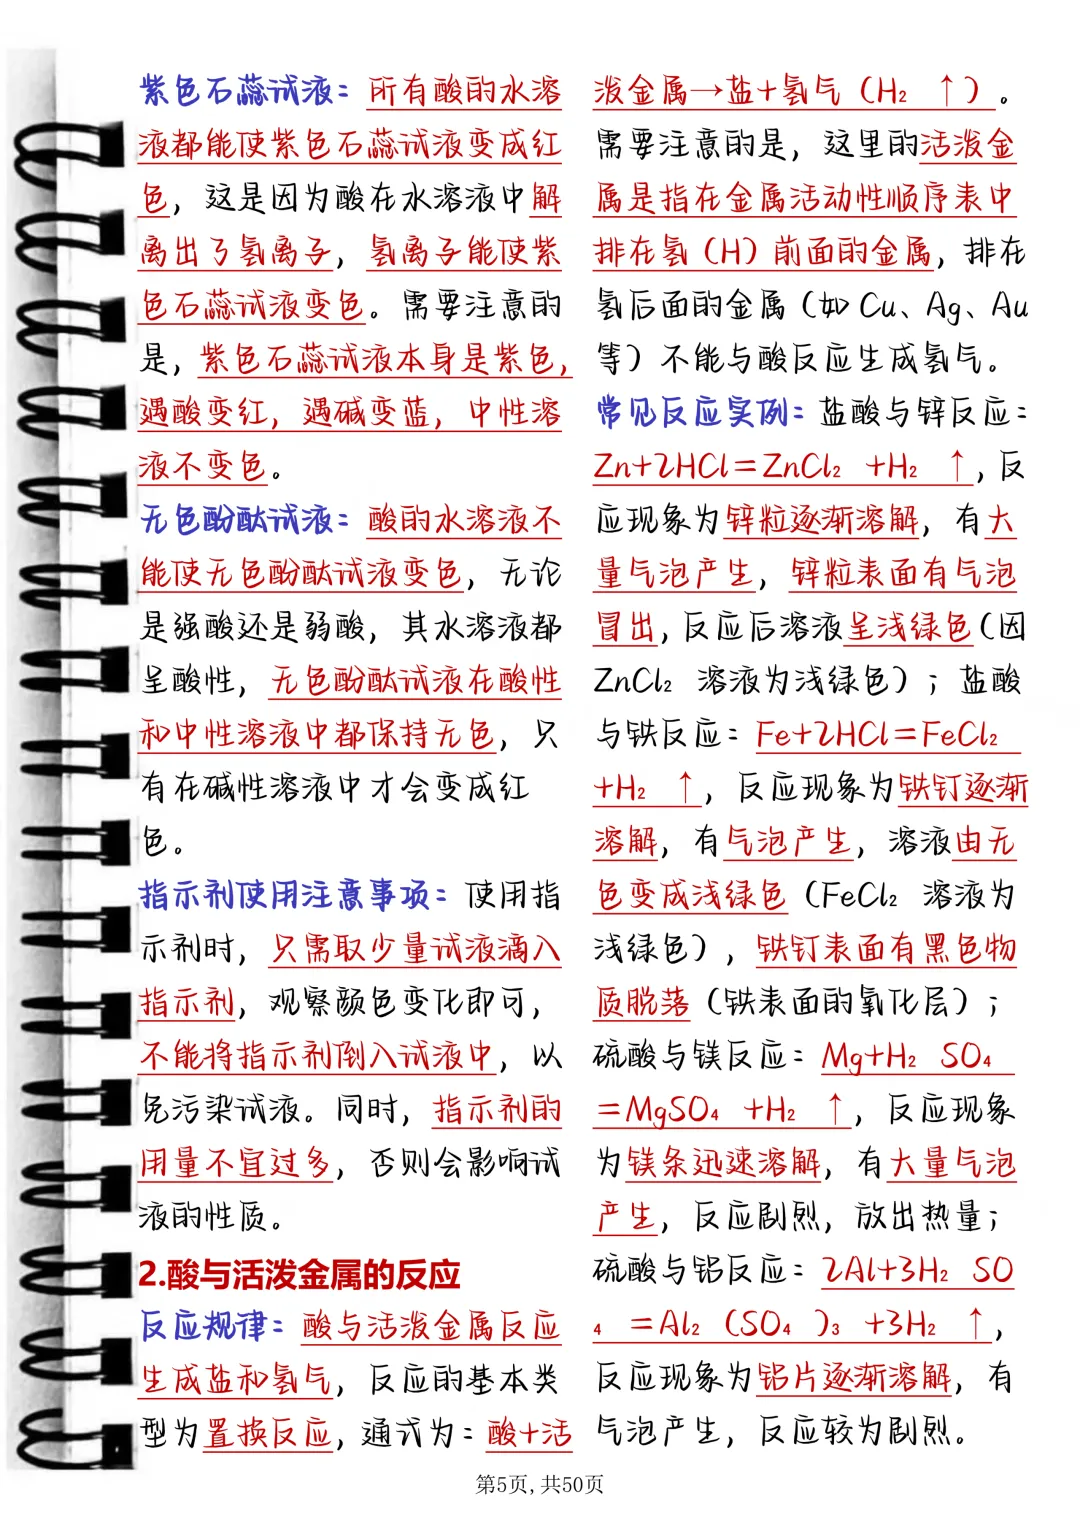 紫色石蕊试液：所有酸的水溶
液都能使紫色石蕊试液变成红
色，这是因为酸在水溶液中解
离出了氢离子，氢离子能使紫
色石蕊试液变色。需要注意的
是，紫色石蕊试液本身是紫色，
遇酸变红，遇碱变蓝，中性溶
液不变色。
无色酚酞试液：酸的水溶液不
能使无色酚酞试液变色，无论
是强酸还是弱酸，其水溶液都
呈酸性，无色酚酞试液在酸性
和中性溶液中都保持无色，只
有在碱性溶液中才会变成红
色。
指示剂使用注意事项：使用指
示剂时，只需取少量试液滴入
指示剂，观察颜色变化即可，
不能将指示剂倒入试液中，以
免污染试液。同时，指示剂的
用量不宜过多，否则会影响试
液的性质。
2.酸与活泼金属的反应
反应规律：酸与活泼金属反应
生成盐和氢气，反应的基本类
型为置换反应，通式为：酸+活
泼金属→盐+氢气（H₂ ↑）。
需要注意的是，这里的活泼金
属是指在金属活动性顺序表中
排在氢（H）前面的金属，排在
氢后面的金属（如 Cu、Ag、Au
等）不能与酸反应生成氢气。
常见反应实例：盐酸与锌反应：
Zn+2HCl=ZnCl₂ +H₂ ↑，反
应现象为锌粒逐渐溶解，有大
量气泡产生，锌粒表面有气泡
冒出，反应后溶液呈浅绿色（因
ZnCl₂ 溶液为浅绿色）；盐酸
与铁反应：Fe+2HCl=FeCl₂
+H₂ ↑，反应现象为铁钉逐渐
溶解，有气泡产生，溶液由无
色变成浅绿色（FeCl₂ 溶液为
浅绿色），铁钉表面有黑色物
质脱落（铁表面的氧化层）；
硫酸与镁反应：Mg+H₂ SO₄
=MgSO₄ +H₂ ↑，反应现象
为镁条迅速溶解，有大量气泡
产生，反应剧烈，放出热量；
硫酸与铝反应：2Al+3H₂ SO
₄ =Al₂ (SO₄ )₃ +3H₂ ↑，
反应现象为铝片逐渐溶解，有
气泡产生，反应较为剧烈。
第5页，共50页